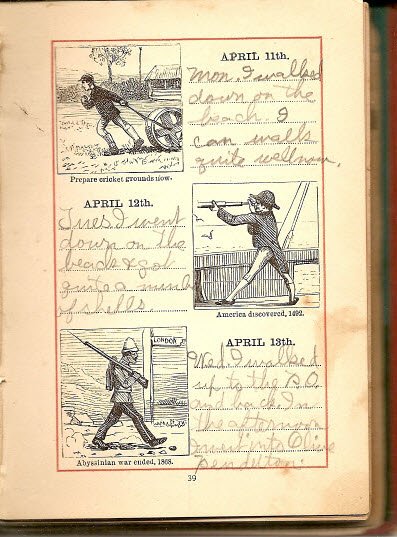 APRIL 11th.
Mon. I walked
down on the
beach. I
can walk
quite well now.
Prepare cricket grounds now.
APRIL 12th.
Tues I went
down on the
beach & got
quite a numb
of shells
America discovered, 1492.
LONDON
APRIL 13th.
Wed I walked
up to the P.O.
and back In
the afternoon
went into Olive
Pendelton.
Abyssinian war ended, 1868.
39